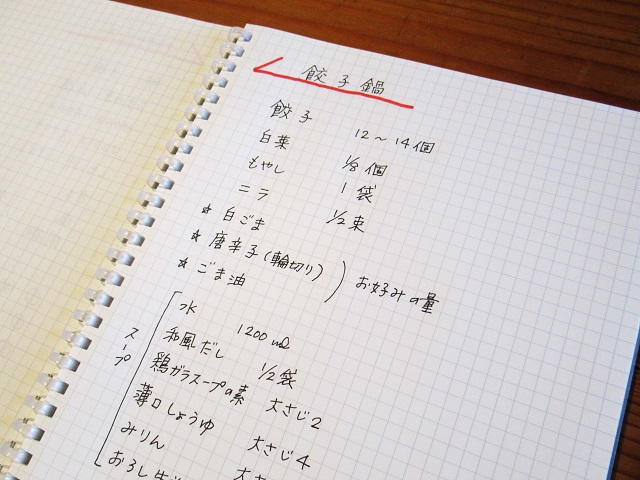 餃子鍋
餃子 12～14個
白菜 1/8個
もやし 1袋
ニラ 1/2束
★白ごま
★唐辛子(輪切り) お好みの量
★ごま油
スープ
水 1200ml
和風だし 1/2袋
鶏ガラスープの素 大さじ2
薄口しょうゆ 大さじ4
みりん 大さ
おろし生